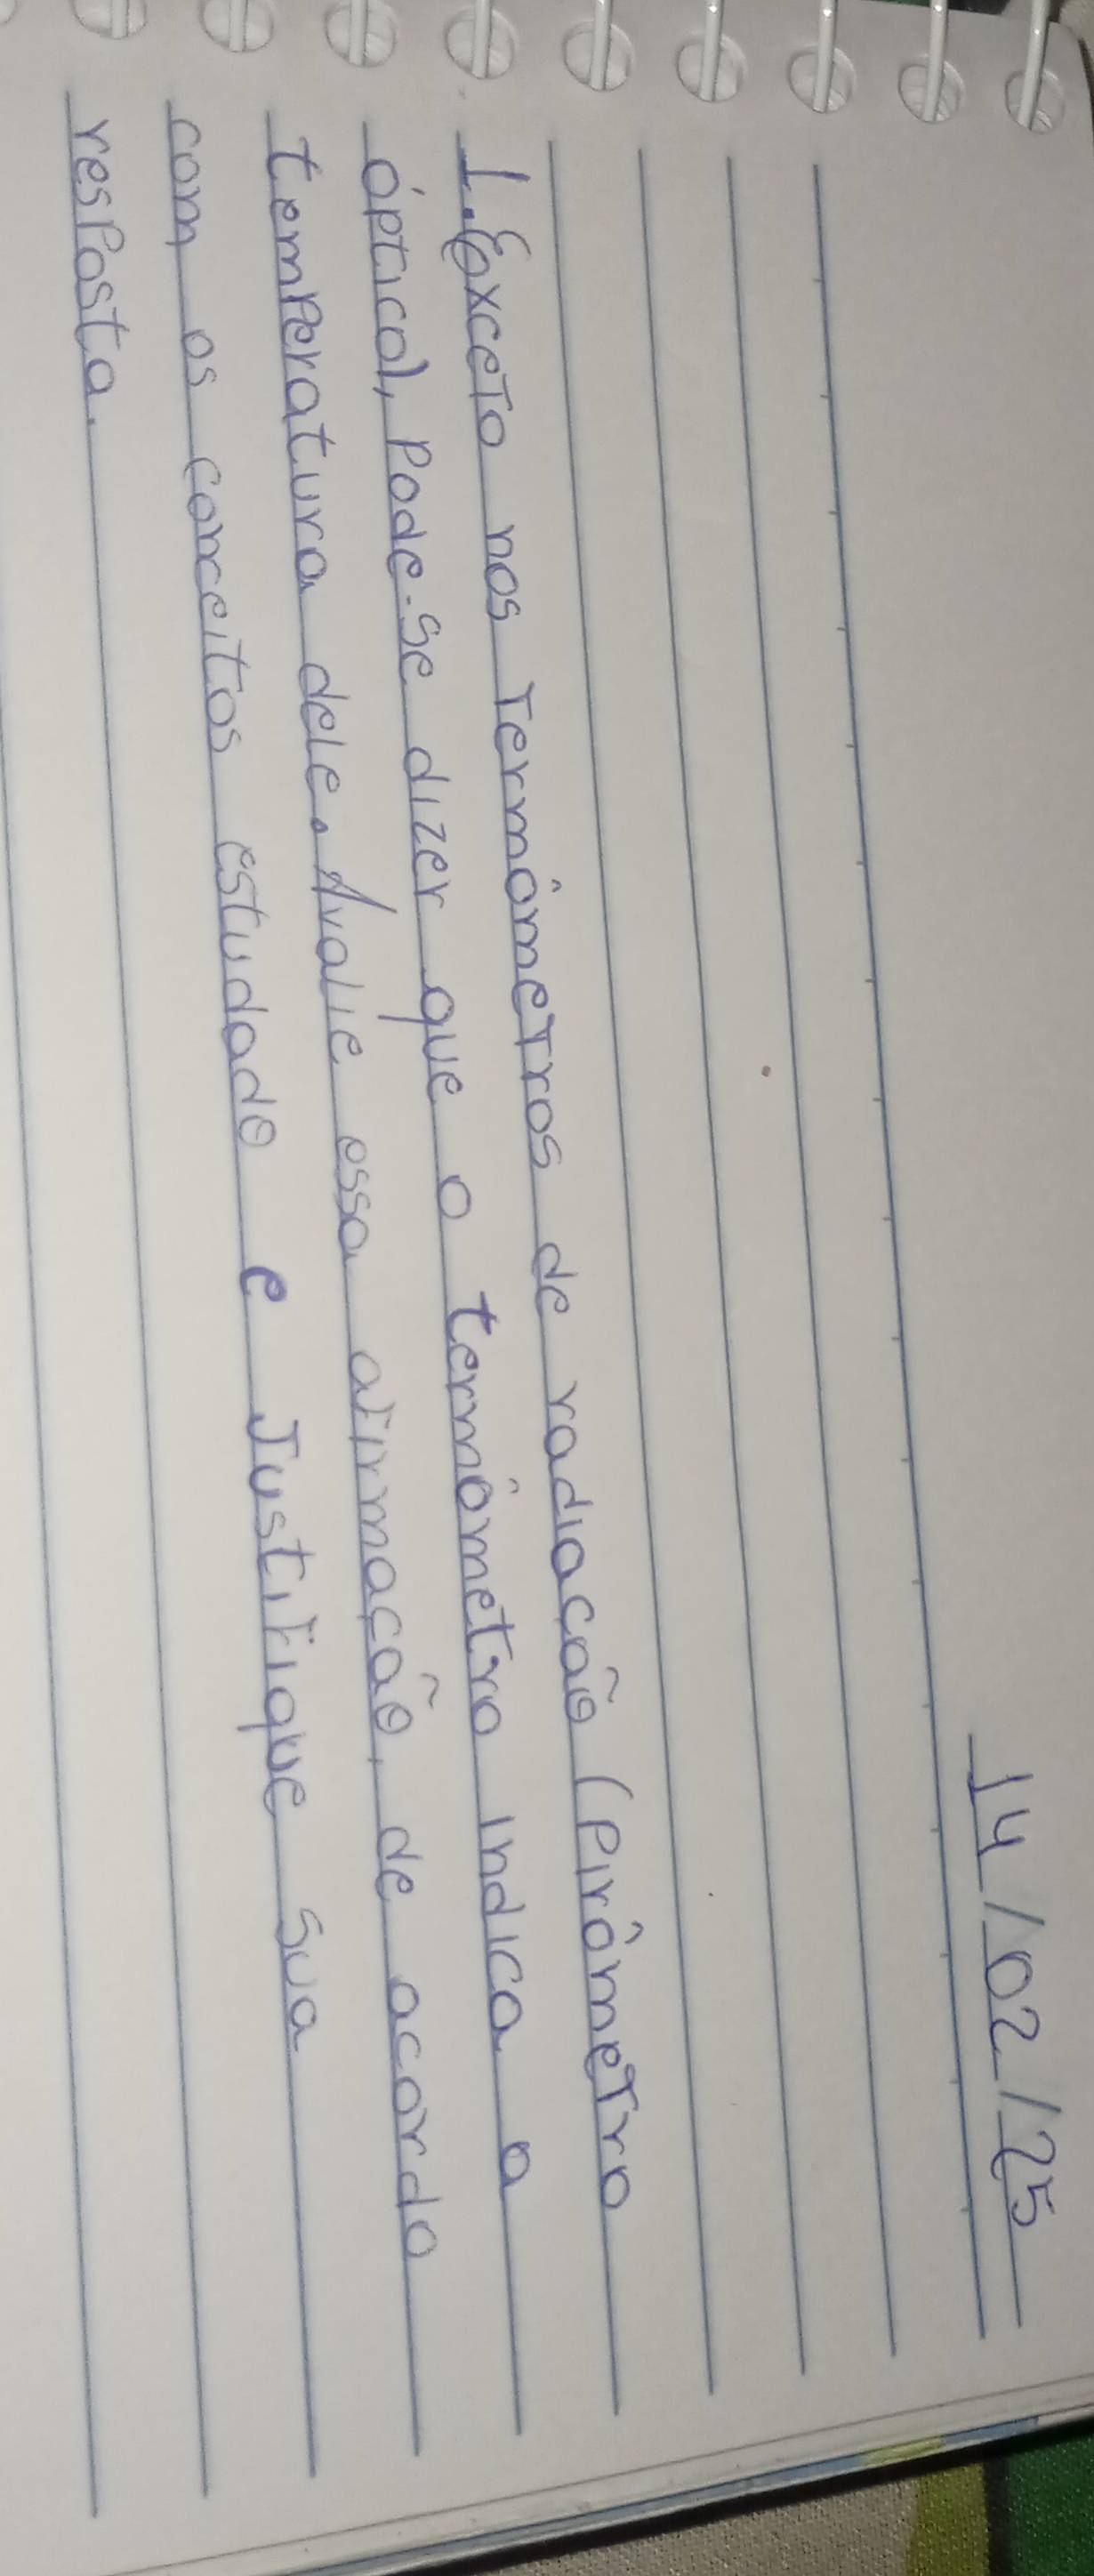 14/02/25
1. Exceto nos termômetros de radiação (pirômetro
óptico), pode-se dizer que o termômetro indica a
temperatura dele. Avalie essa afirmação, de acordo
com os conceitos estudado e Justifique sua
resposta.